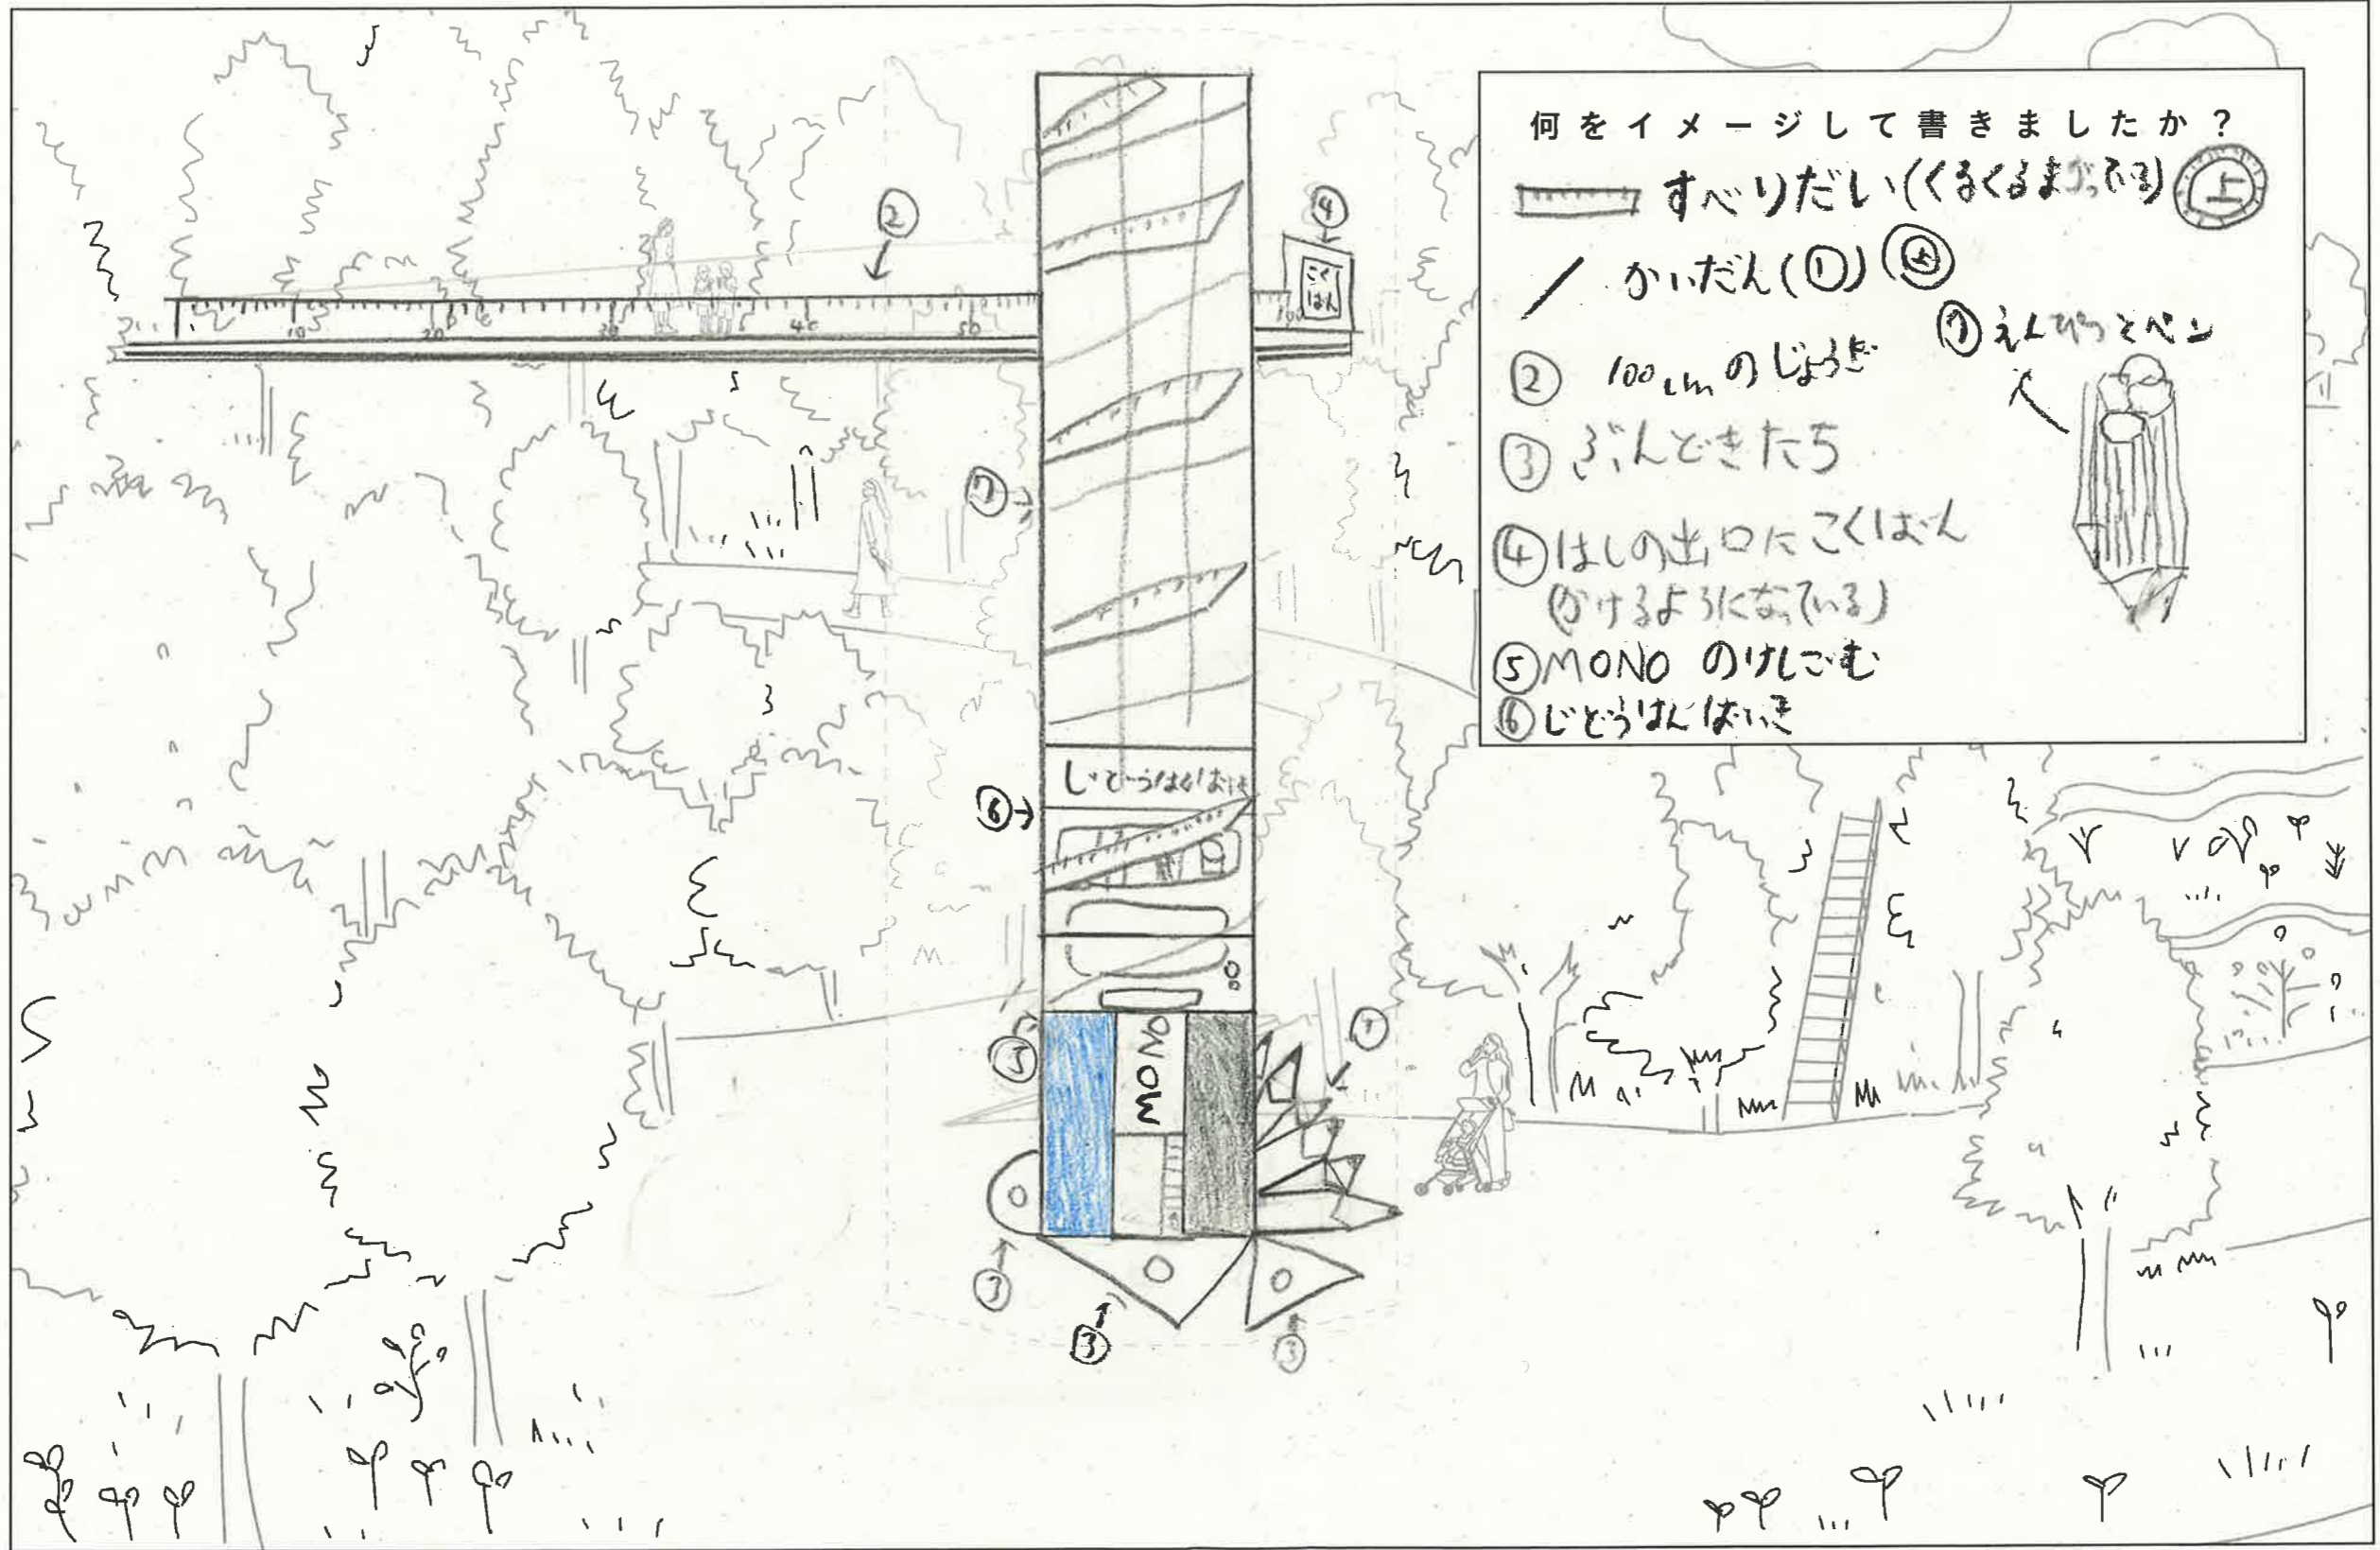 何をイメージして書きましたか？
すべりだい(くるくるまがっている) 上
かいだん(①) 上
② 100cmのじょうぎ
⑦えんぴつとペン
③ ぶんどきたち
④はしの出口にこくばん
(かけるようになっている)
⑤MONO のけしごむ
⑥じどうはんばいき
②
④
こく
ばん
10 20 30 40 50 100
⑦
じどうはんばいき
⑥
⑤
MONO
③
③
③